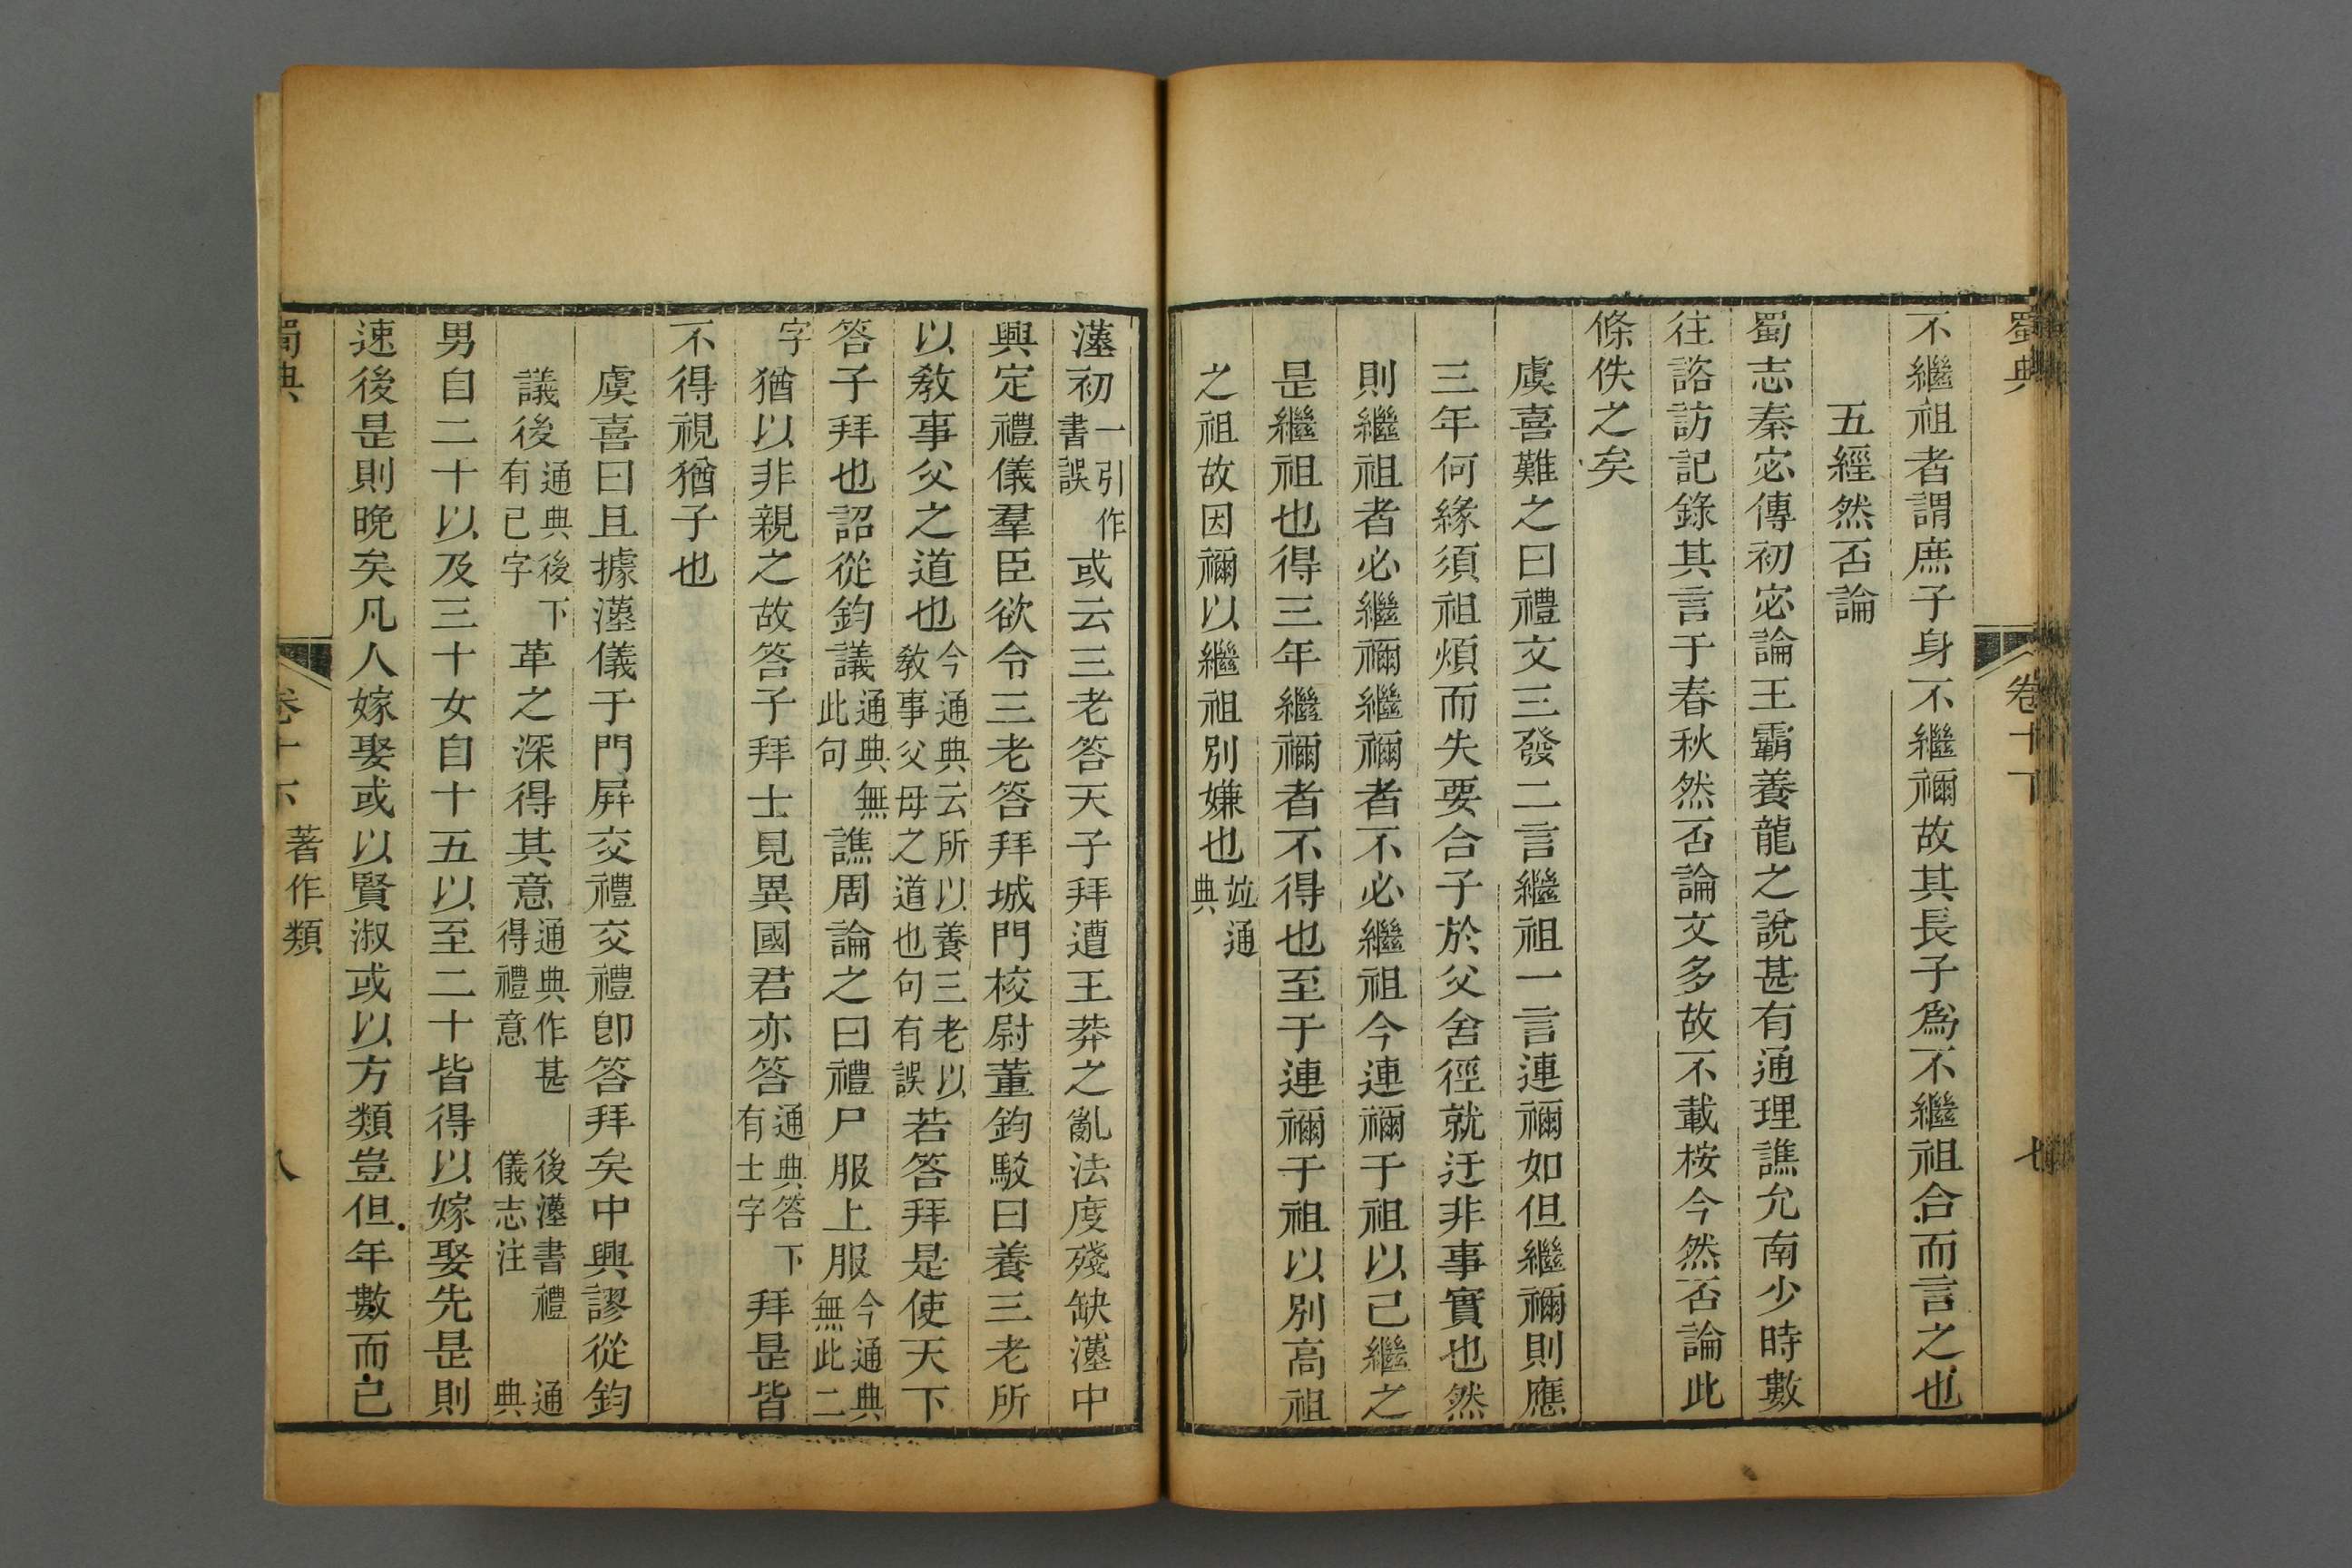 蜀典 卷十下 七
不繼祖者謂庶子身不繼禰故其長子爲不繼祖合而言之也
五經然否論
蜀志秦宓傳初宓論王霸養龍之說甚有通理譙允南少時數
往諮訪記錄其言于春秋然否論文多故不載桉今然否論此
條佚之矣
虞喜難之曰禮文三發二言繼祖一言連禰如但繼禰則應
三年何緣須祖煩而失要合子於父舍徑就迂非事實也然
則繼祖者必繼禰繼禰者不必繼祖今連禰于祖以己繼之
是繼祖也得三年繼禰者不得也至于連禰于祖以別高祖
之祖故因禰以繼祖別嫌也並通典
漢初一引作書誤或云三老答天子拜遭王莽之亂法度殘缺漢中
興定禮儀羣臣欲令三老答拜城門校尉董鈞駁曰養三老所
以敎事父之道也今通典云所以養三老以敎事父母之道也句有誤若答拜是使天下
答子拜也詔從鈞議通典無此句譙周論之曰禮尸服上服今通典無此二
字猶以非親之故答子拜士見異國君亦答通典答下有士字拜是皆
不得視猶子也
虞喜曰且據漢儀于門屏交禮交禮卽答拜矣中興謬從鈞
議後通典後下有已字革之深得其意通典作甚得禮意後漢書禮儀志注通典
男自二十以及三十女自十五以至二十皆得以嫁娶先是則
速後是則晚矣凡人嫁娶或以賢淑或以方類豈但年數而已
蜀典 卷十下 著作類 八